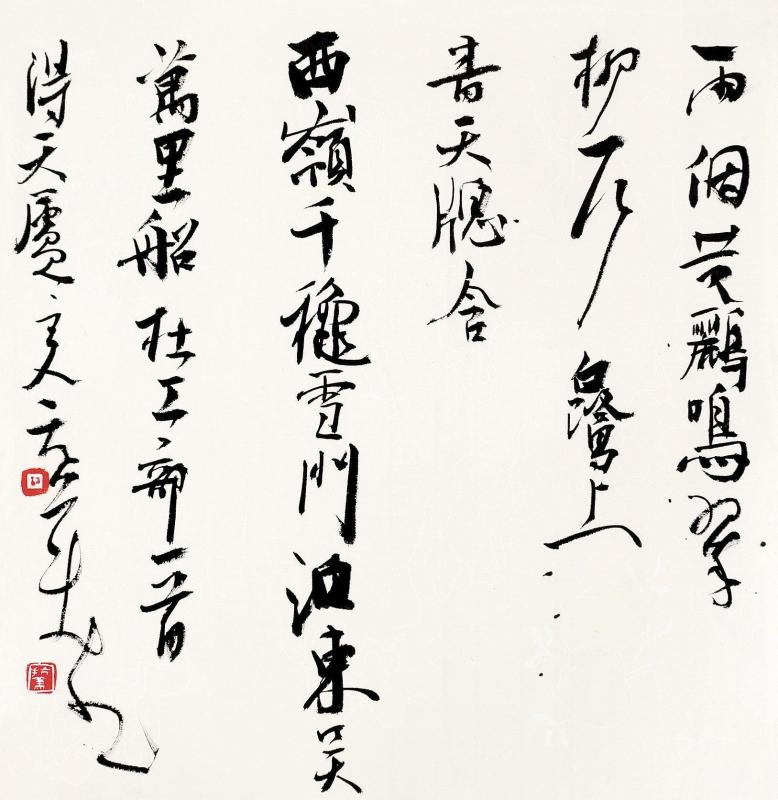 兩個黄鸝鳴翠
柳一行白鷺上
青天牕含
西嶺千穐雪門泊東吴
萬里船杜工部一首
得天廬主人